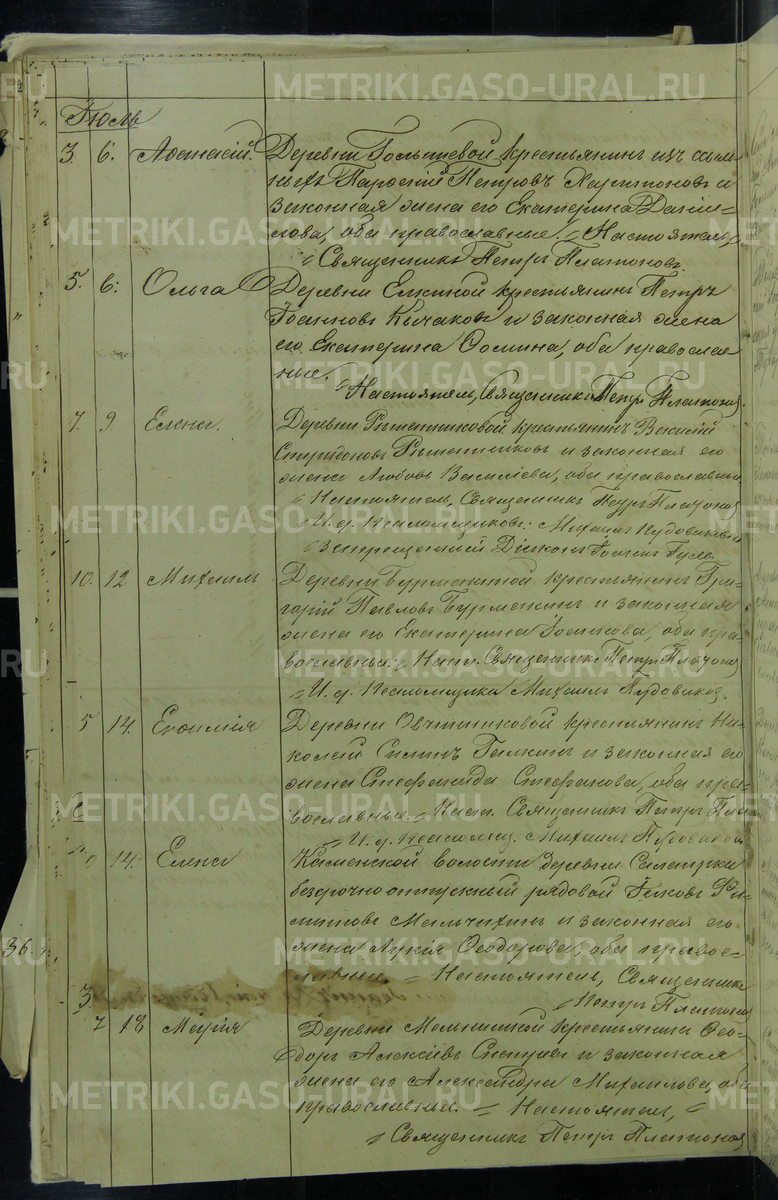 METRIKI.GASO-URAL.RU
Іюль
3. 6. Аѳанасій. Деревни крестьянинъ изъ ссыль-
ныхъ Петровъ Харитоновъ и
законная жена его Екатерина Дании-
лова, оба православные. Настоятель,
Священникъ Петръ Платоновъ.
5. 6. Ольга Деревни Елкиной крестьянинъ Петръ
Іоанновъ Кычаковъ и законная жена
его Екатерина Ѳомина, оба православ-
ные.
Настоятель, Священникъ Петръ Платоновъ
7. 9. Елена. Деревни Рѣшетниковой крестьянинъ Василій
Спиридоновъ Рѣшетниковъ и законная его
жена Любовь Василіева, оба православные
Настоятель, Священникъ Петръ Платоновъ
И. д. Псаломщиковъ: Михаилъ Пудовиковъ
Діаконъ Іоаннъ
10. 12 Михаилъ Деревни Бурмакиной крестьянинъ Гри-
горій Павловъ Бурмакинъ и законная
жена его Екатерина Іоаннова, оба пра-
вославные. Наст. Священникъ Петръ Платоновъ
И. д. Псаломщика Михаилъ Пудовиковъ.
5 14. Евѳимія Деревни Овчинниковой крестьянинъ Ни-
колай Силинъ Галкинъ и законная его
жена Стефанида Стефанова, оба пра-
вославные. Наст. Священникъ Петръ Пла
И. д. Псаломщ. Михаилъ Пудовиковъ
14. Елена Каменской волости деревни
безсрочно отпускный рядовой Іаковъ Фи-
липповъ Мальчихинъ и законная его
жена Лукія Ѳеодорова, оба правос-
лавные. Настоятель, Священникъ
36.
Петръ Платоновъ
3.
7 18 Марія Деревни крестьянинъ Ѳео-
доръ Алексіевъ и законная
жена его Александра Михаилова, оба
православные. Настоятель,
Священникъ Петръ Платоновъ